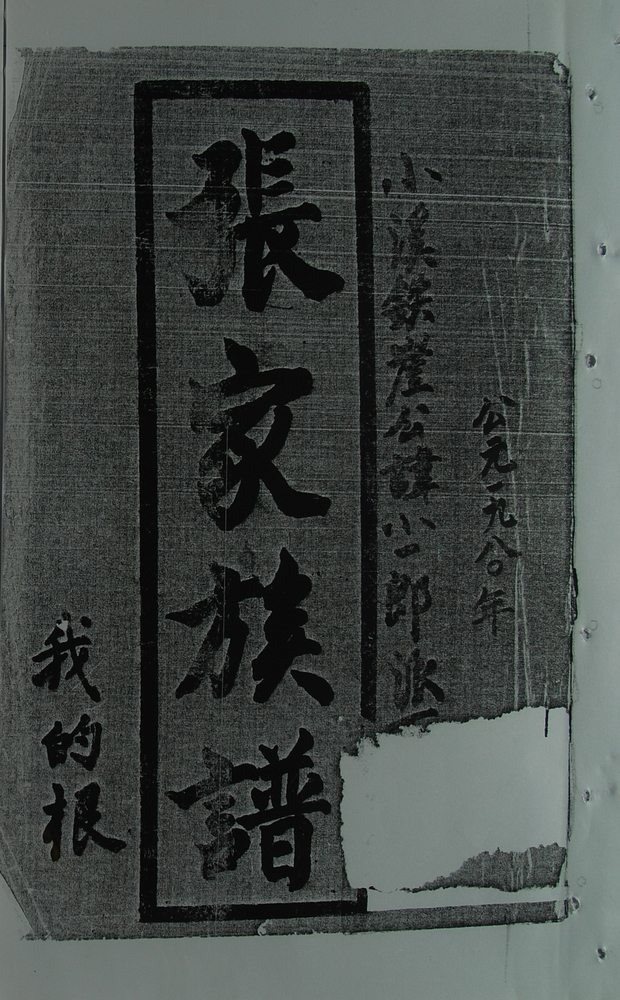 公元一九八〇年
小溪鉄崖公諱小一郎派
張家族譜
我的根